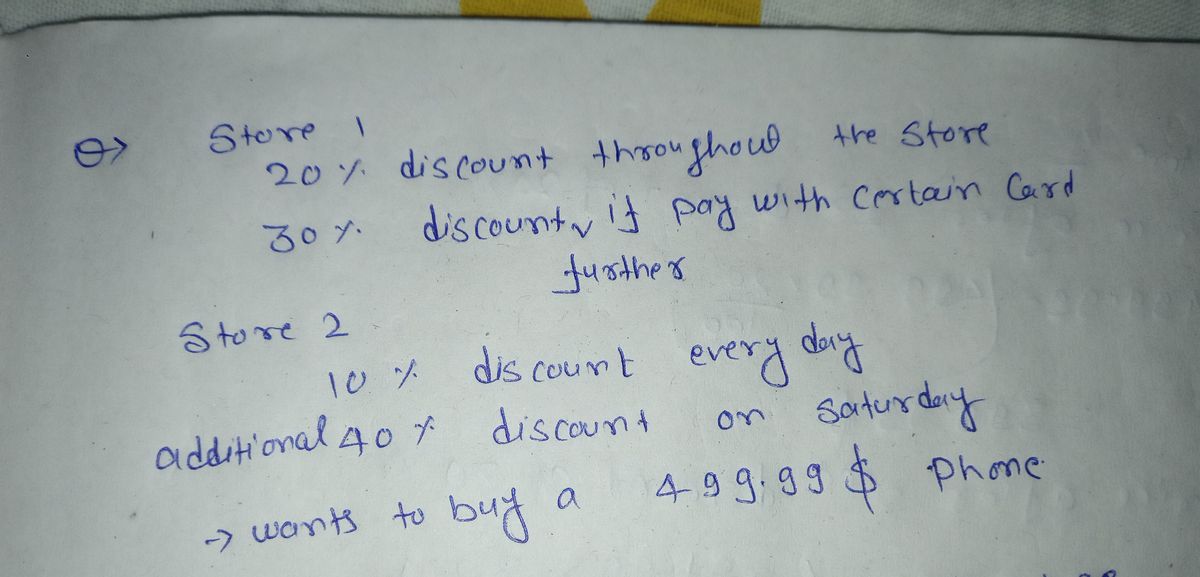 Q> Store 1
20 % discount throughout the Store
30 % discount, if pay with certain Card
further
Store 2
10 % discount every day
additional 40 % discount on saturday
→ wants to buy a 499.99 $ Phone